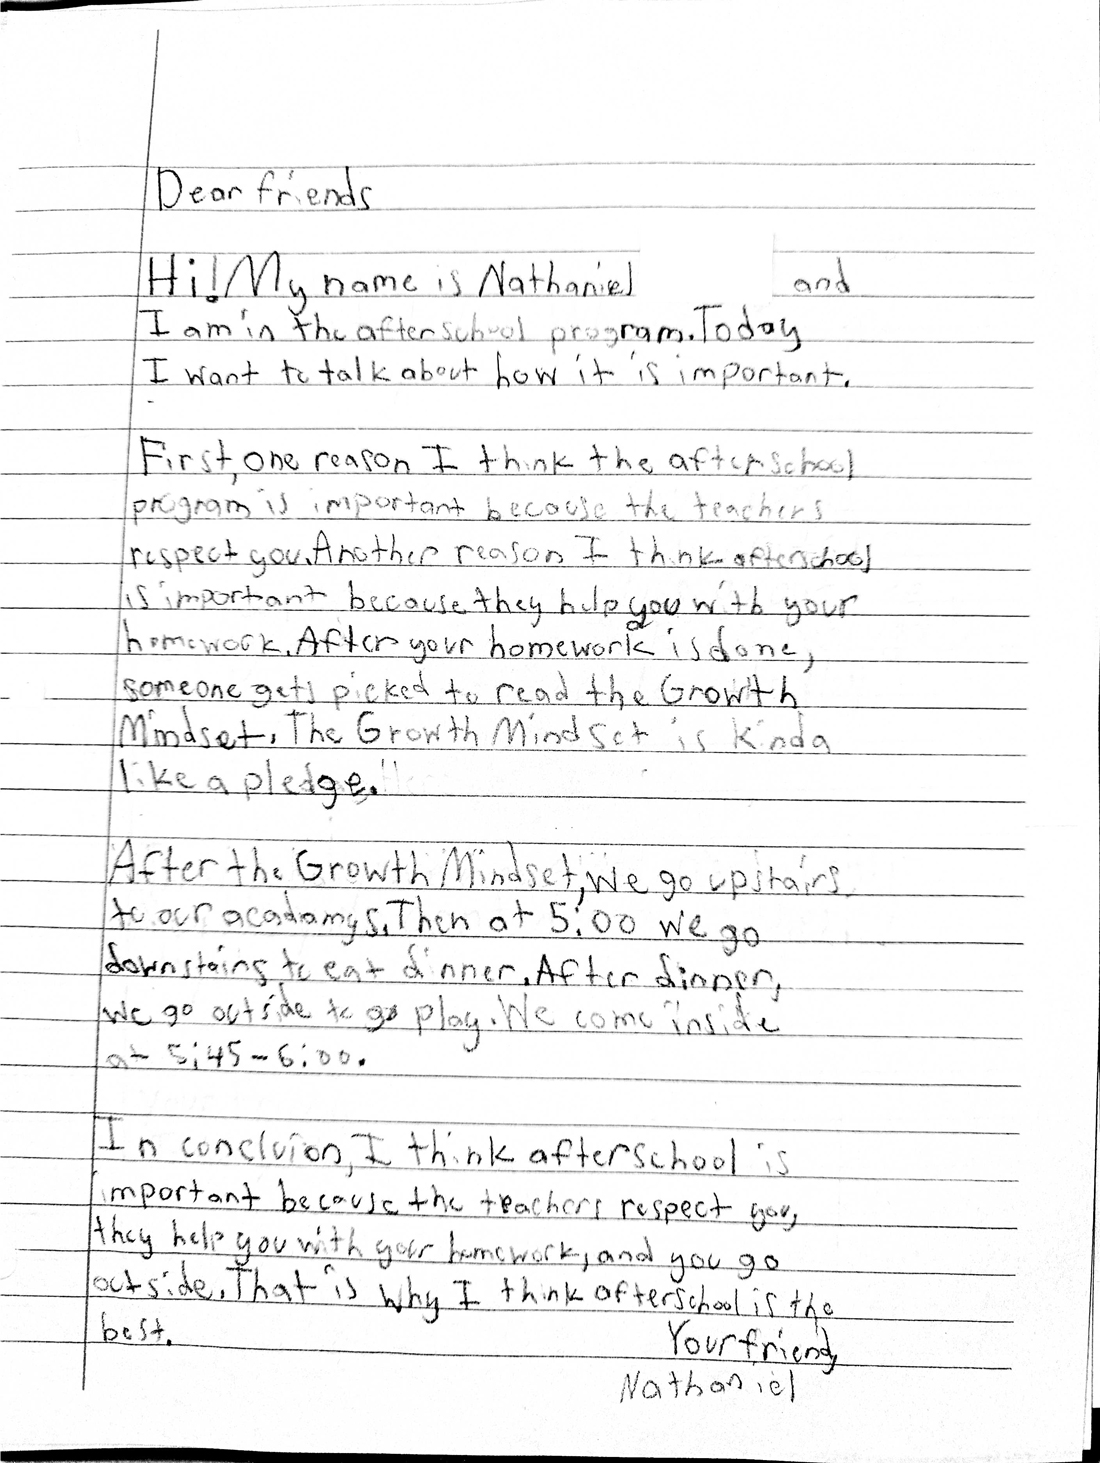 Dear friends
Hi! My name is Nathaniel and
I am in the afterschool program. Today
I want to talk about how it is important.
First, one reason I think the afterschool
program is important because the teachers
respect you. Another reason I think afterschool
is important because they help you with your
homework. After your homework is done,
someone gets picked to read the Growth
Mindset. The Growth Mindset is kinda
like a pledge.
After the Growth Mindset, we go upstairs
to our acadamys. Then at 5:00 we go
downstairs to eat dinner. After dinner,
we go outside to go play. We come inside
at 5:45-6:00.
In concluion, I think afterschool is
important because the teachers respect you,
they help you with your homework, and you go
outside. That is why I think afterschool is the
best.
Your friend,
Nathaniel